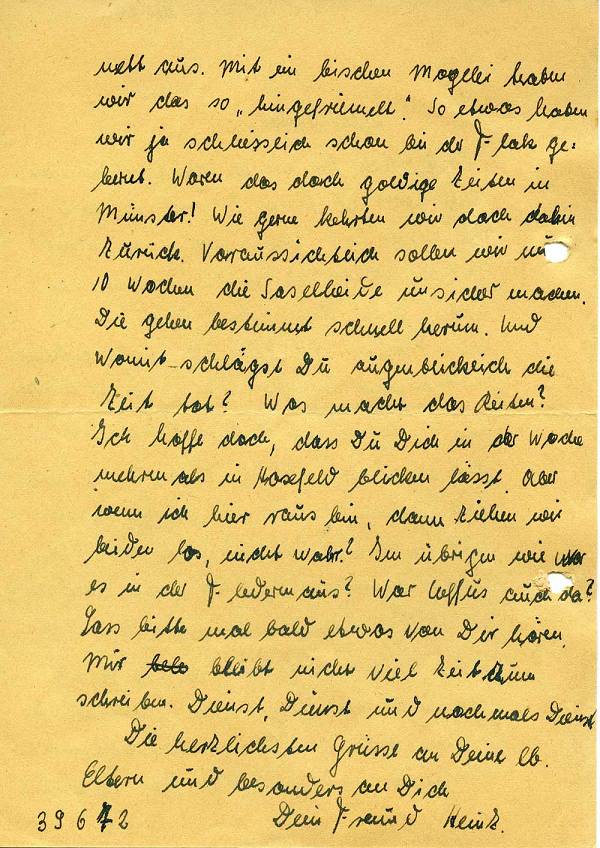 nett aus. Mit ein bischen Mogelei haben
wir das so „hingefriemelt". So etwas haben
wir ja schliesslich schon bei der Flak ge=
lernt. Waren das doch goldige Zeiten in
Münster! Wie gerne kehrten wir doch dahin
zurück. Voraussichtlich sollen wir nur
10 Wochen die unsicher machen.
Die gehen bestimmt schnell herum. Und
womit schlägst Du augenblicklich die
Zeit tot? Was macht das Reiten?
Ich hoffe doch, dass Du Dich in der Woche
mehrmals in blicken lässt. Aber
wenn ich hier raus bin, dann ziehen wir
beiden los, nicht wahr? Im übrigen wie war
es in der Fledermaus? War auch da?
Lass bitte mal bald etwas von Dir hören.
Mir bleibt nicht viel Zeit zum
schreiben. Dienst, Dienst und nochmals Dienst
Die herzlichsten Grüsse an Deine lb.
Eltern und besonders an Dich
Dein Freund Heinz.